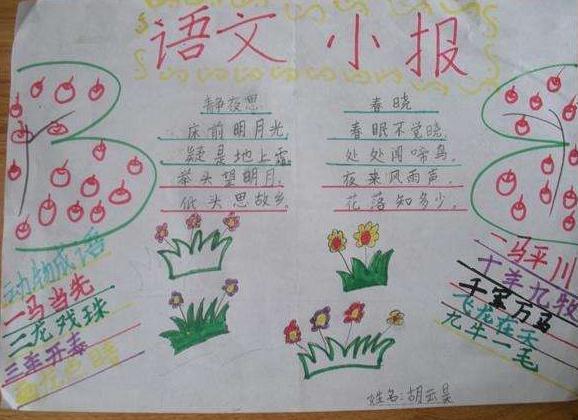 语文小报
静夜思
床前明月光,
疑是地上霜
举头望明月,
低头思故乡.
春晓
春眠不觉晓,
处处闻啼鸟,
夜来风雨声,
花落知多少,
动物成语
一马当先
二龙戏珠
三羊开泰
一马平川
十羊九牧
千军万马
飞龙在天
九牛一毛
姓名:胡云昊